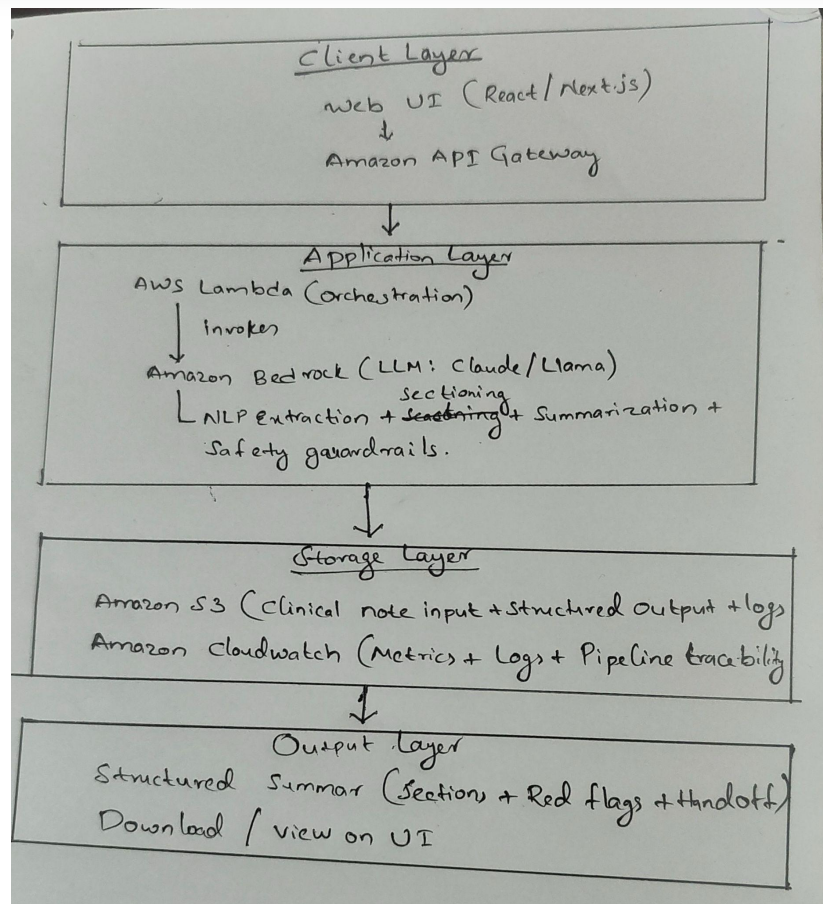 Client Layer
Web UI (React/Next.js)
Amazon API Gateway
Application Layer
AWS Lambda (orchestration)
invokes
Amazon Bedrock (LLM: Claude/Llama)
sectioning
NLP extraction + + Summarization +
Safety gauardrails.
Storage Layer
Amazon S3 (Clinical note input + structured output + logs
Amazon Cloudwatch (Metrics + Logs + Pipeline tracebility
Output Layer
Structured Summar (Sections + Red flags + Handoff)
Download / view on UI